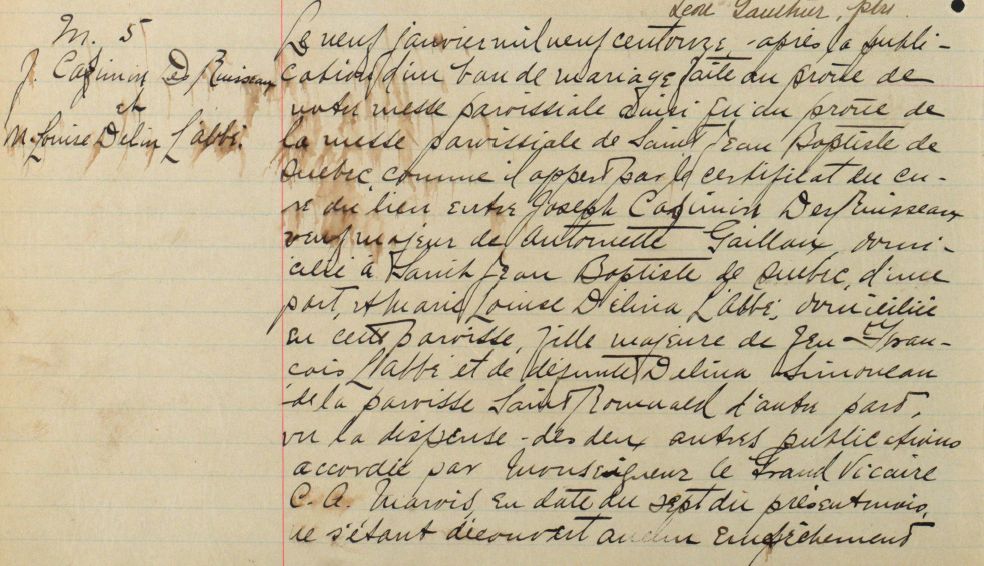 Léon Gauthier, ptre
M. 5
J. Casimir Des Ruisseaux
et
M. Louise Délina L'abbé.
Le neuf janvier mil neuf cent onze, après la publi-
cation d'un ban de mariage faite au prône de
notre messe paroissiale ainsi qu'au prône de
la messe paroissiale de Saint Jean Baptiste de
Quebec, comme il appert par le certificat du cu-
ré du lieu entre Joseph Casimir DesRuisseaux
veuf majeur de Antoinette Gailloux, domi-
cilié à Saint Jean Baptiste de Quebec, d'une
part, et Marie Louise Délina L'abbé, domiciliée
en cette paroisse, fille majeure de feu Fran-
cois L'abbé et de défunte Delina Simoneau
de la paroisse Saint Romuald d'autre part,
vu la dispense des deux autres publications
accordée par Monseigneur le Grand Vicaire
C. A. Marois, en date du sept du présent mois,
ne s'étant découvert aucun empêchement